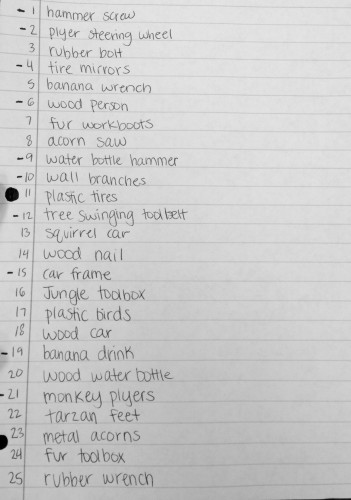 - 1 hammer screw
- 2 plyer steering wheel
3 rubber bolt
- 4 tire mirrors
5 banana wrench
- 6 wood person
7 fur workboots
8 acorn saw
- 9 water bottle hammer
- 10 wall branches
11 plastic tires
- 12 tree swinging toolbelt
13 squirrel car
14 wood nail
- 15 car frame
16 Jungle toolbox
17 plastic birds
18 wood car
- 19 banana drink
20 wood water bottle
- 21 monkey plyers
22 tarzan feet
23 metal acorns
24 fur toolbox
25 rubber wrench